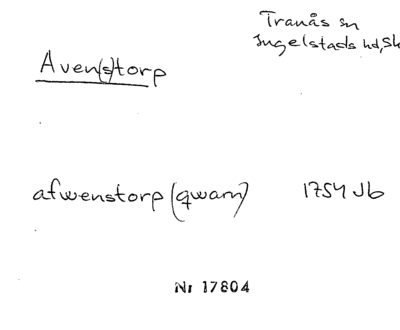 Tranås sn
Ingelstads hd, Sk
Aven(s)torp
afwenstorp (qwarn) 1754 Jb
Nr 17804